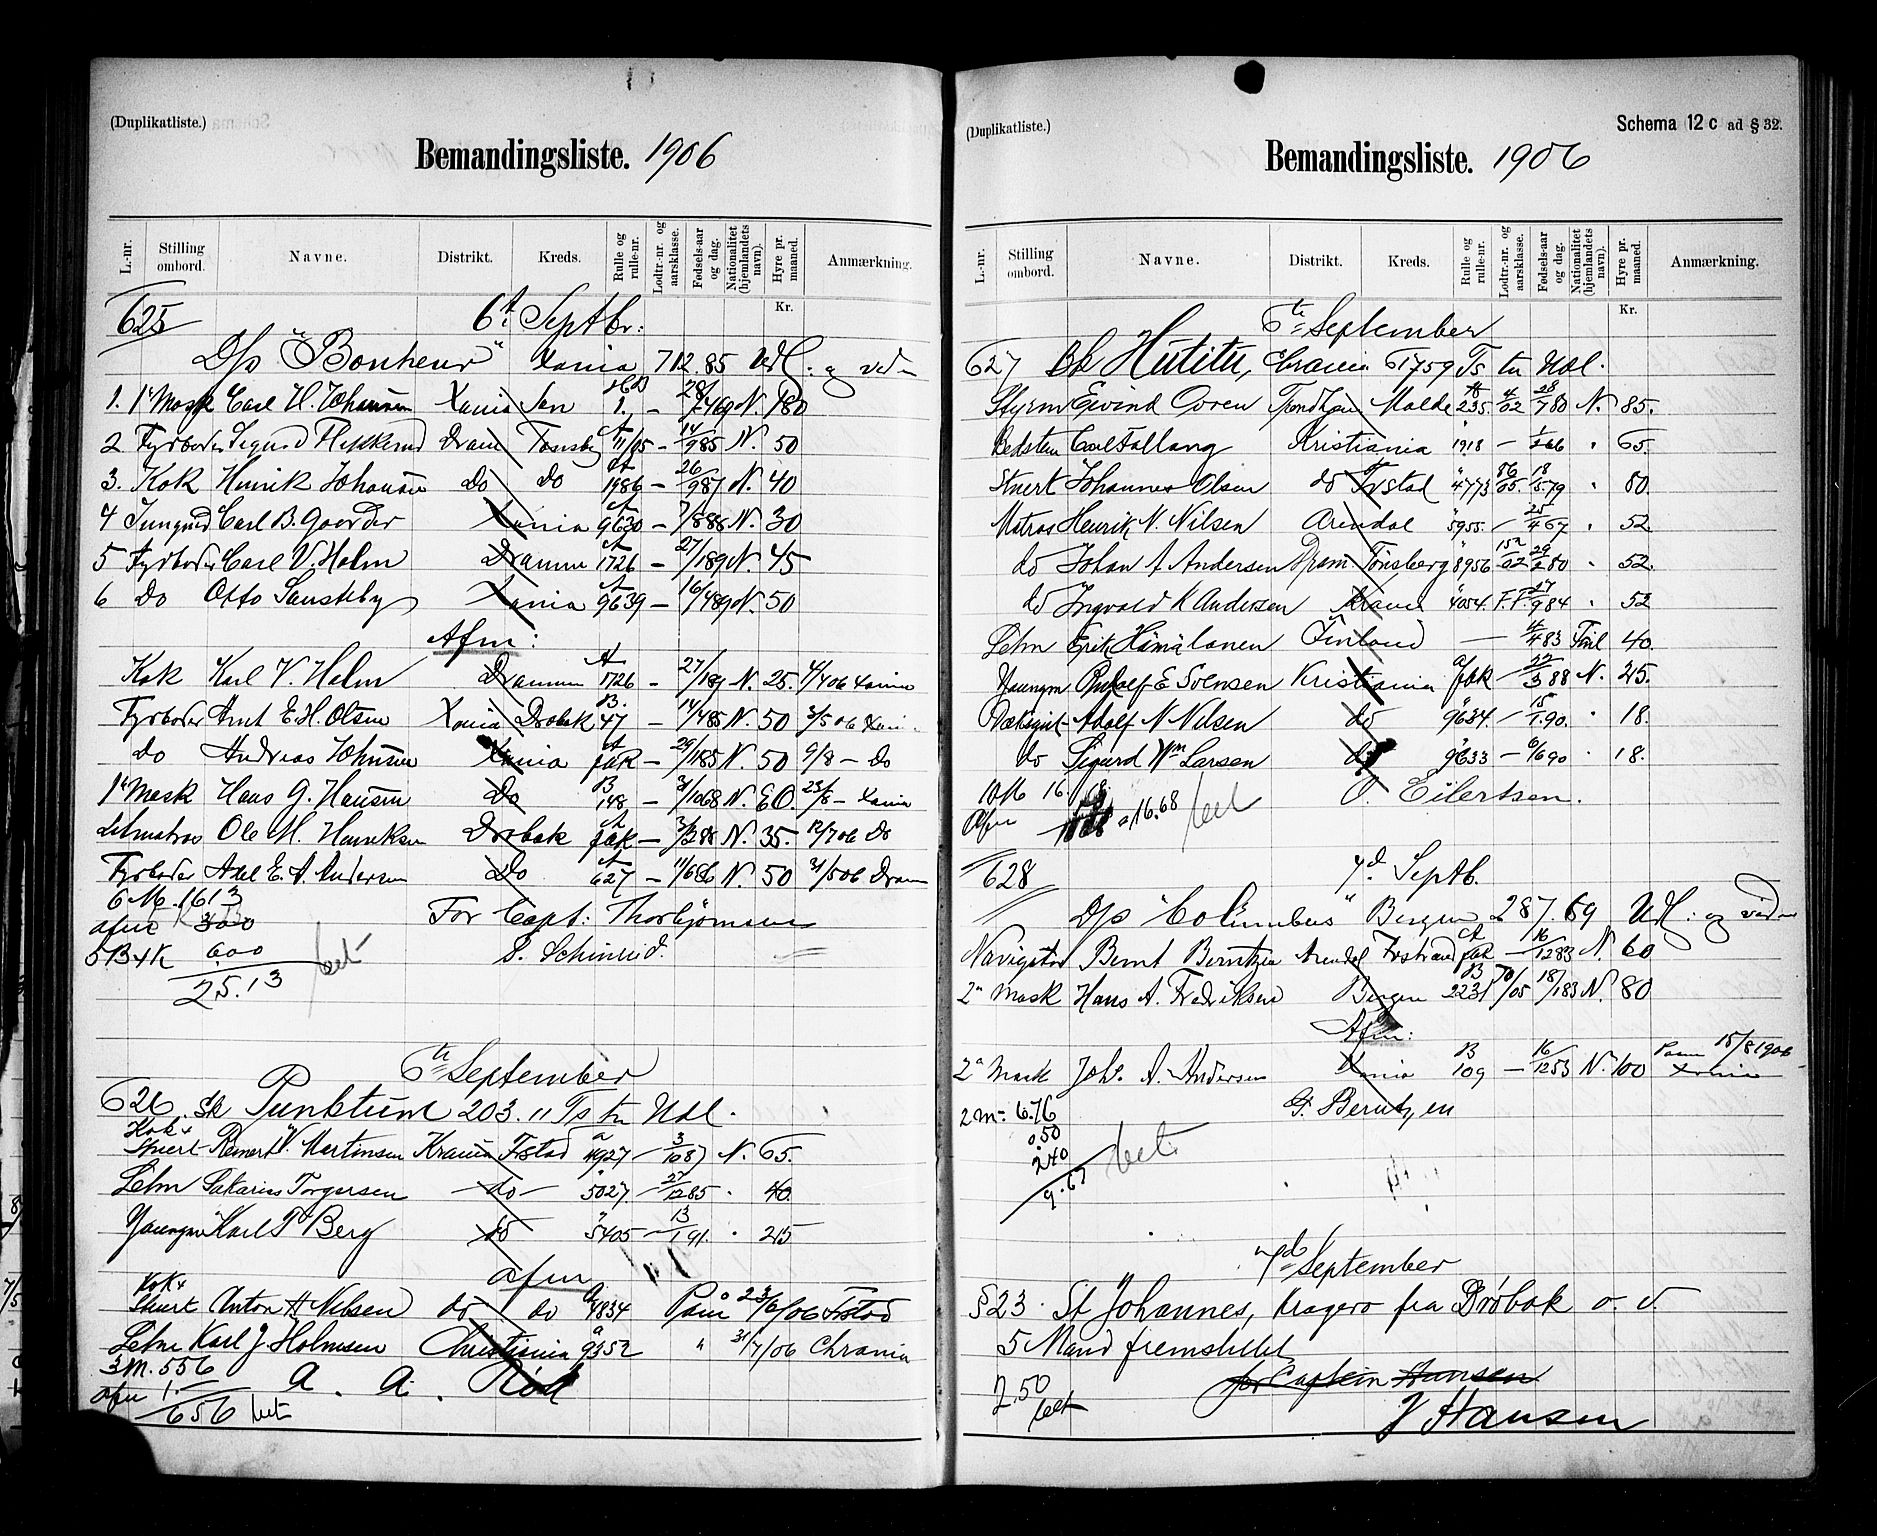 (Duplikatliste.)
Bemandingsliste. 1906
L.-nr. Stilling ombord. Navne. Distrikt. Kreds. Rulle og rulle-nr. Lodtr.-nr. og aarsklasse. Fødsels-aar og dag. Nationalitet (hjemlandets navn). Hyre pr. maaned. Anmærkning.
Kr.
625 6t Septbr:
D/s "Bonheur" Xania 712.85 Udl. og
1. 1ste Mask Carl H. Johansen Xania Søn 1. – 28/7 69 N. 180
2 Fyrbøder Sigurd Dram Tønsbg 11/05 – 14/9 85 N. 50
3. Kok Henrik Johansen Do Do 1986 – 26/9 87 N. 40
4 Jungmd Carl B. Xania 9630 – 7/8 88 N. 30
5 Fyrbøder Carl V. Holm Drammen 1726 – 27/1 89 N. 45
6 Do Otto Xania 9639 – 16/4 89 N. 50
Afm:
Kok Karl V. Holm Drammen A 1726 – 27/1 89 N. 25. 4/4 06 Xania
Fyrbøder Arnt E. H. Olsen Xania Drøbak B. 47 – 14/4 85 N. 50 3/5 06 Xani
Do Andreas Johnsen Xania fak – 29/1 85 N. 50 9/8 – Do
1ste Mask Hans G. Hansen Do B 148 – 31/10 68 N. 80. 23/8 – Xania
Letmatros Ole M. Henriksen Drøbak fak – 3/2 88 N. 35. 12/7 06 Do
Fyrbøder Axel E. A. Andersen Do 627 – 11/6 86 N. 50 31/5 06 Dram
6 M. 1613
afm 300
6.00
25.13 bet
For Capt: Thorbjørnsen
S.
6te September
626. Sk Punktum 203.11 Ts tr Udl.
Kok + Stuert Reinert V. Martinsen Krania Fstad a 4927 – 3/10 87 N. 65.
Letm Sakarias Torgersen – do – 5027 – 27/12 85 . 40.
Youngm Karl Berg do 5405 – 13/1 91. . 25
afm
Kok + Stuert Anton H Nilsen do do a 4834 Paam 23/6/06 Fstad
Letm Karl J. Holmsen Christiania a 9352 " 31/7/06 Chrania
3 M. 556
afm 1.–
656 bet
A. A. Rød
(Duplikatliste.)
Schema 12 c ad § 32.
Bemandingsliste. 1906
L.-nr. Stilling ombord. Navne. Distrikt. Kreds. Rulle og rulle-nr. Lodtr.-nr. og aarsklasse. Fødsels-aar og dag. Nationalitet (hjemlandets navn). Hyre pr. maaned. Anmærkning.
Kr.
6te September
627 Bk Hutitu, Chrania 61759 Ts tr Udl.
Styrm Eivind Ovren Trondhjem Molde A 235. 4/02 28/7 80 N. 85.
Bedstm Carl Fallang Kristiania 1918 – 1/2 66 " 65.
Stuert Johannes Olsen do Frstad 4773 86/05. 18/5 79 " 80.
Matros Henrik N. Nilsen Arendal 5955 – 25/4 67 " 52
do Johan A Andersen Dram Tønsberg 8956 152/02 29/2 80 " 52.
do Ingvald K Andersen Krania 4054. F.F. 27/9 84 " 52
Letm Erik Hämälanen Finland – 4/4 83 Finl 40.
Youngm Rudolf E Svensen Kristiania fak – 22/3 88 N. 25.
Dæksgut Adolf N Nilsen do 9634. – 15/1 90. " 18.
do Sigurd Wm Larsen do 9633 – 6/6 90 " 18.
10 M 16.68
Afm
16.68 bet
O. Eilertsen.
628 7d Septb.
D/s "Columbus" Bergen 287.69 Udl: og
Navigatør Bernt Berntzen Arendal Fstrand A fak – 16/12 83 N. 60
2n Mask Hans A. Fredriksen Bergen B 2231 70/05 18/1 83 N. 80
Afm:
2n Mask Johs. A. Andersen Xania B 109 – 16/12 53 N. 100 Paam 15/8 1906 Xania
2 m – 6.76
0.50
2.40
9.67 bet.
G. Berntzen
7de September
§ 23. St Johannes, Kragerø fra Drøbak o. v.
5 Mand fremstillet
2.50 bet
for Captein Hansen
J Hansen